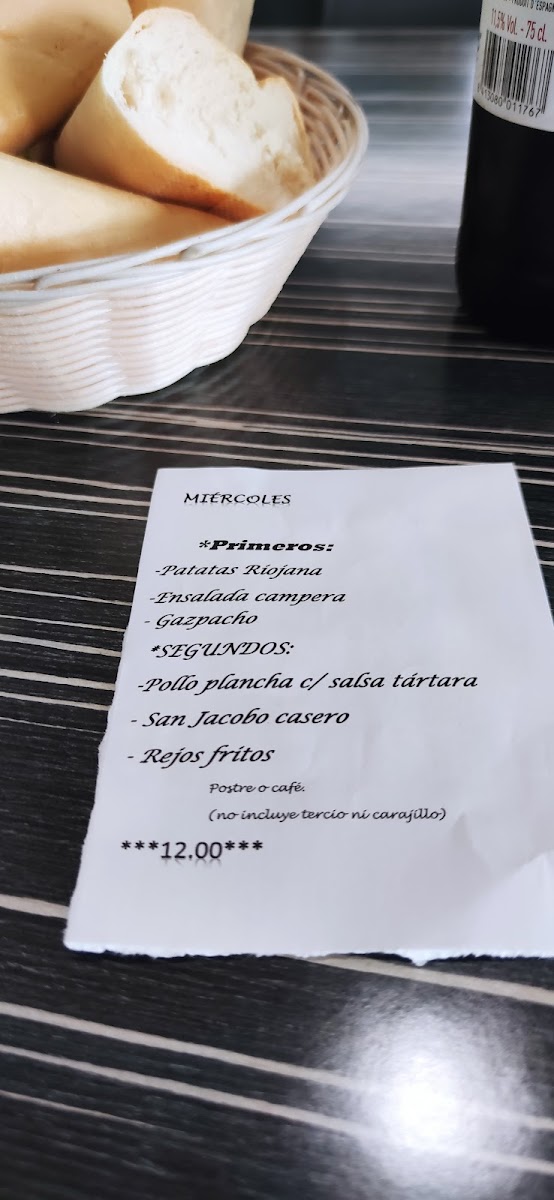 PRODUIT D'ESPAGN
11,5% Vol. - 75 cL
MIÉRCOLES
*Primeros:
-Patatas Riojana
-Ensalada campera
- Gazpacho
*SEGUNDOS:
-Pollo plancha c/ salsa tártara
- San Jacobo casero
- Rejos fritos
Postre o café.
(no incluye tercio ni carajillo)
***12.00***